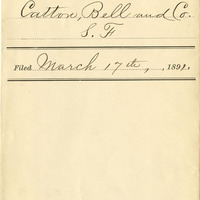 Catton, Bell and Co.
S. F
Filed March 17th, 1891.